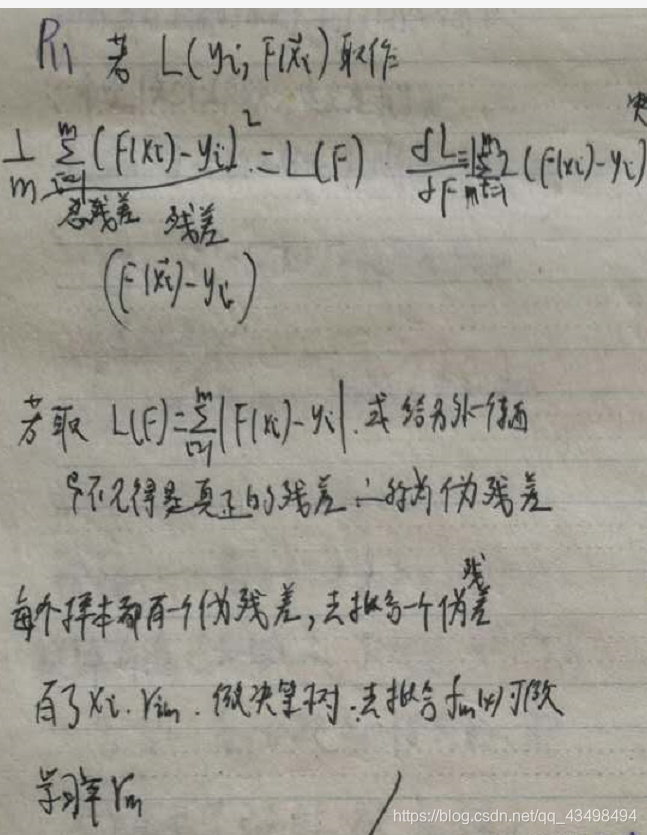 P11 若 L(yi, F(x⃗i)) 取作
决
1/m ∑_{i=1}^{m} (F(xi)-yi)² = L(F) δL/δF = 1/m ∑_{i=1}^{m} 2(F(xi)-yi)
总残差 残差
(F(x⃗i)-yi)
若取 L(F)=∑_{i=1}^{m}|F(xi)-yi|. 或给另外一个
不见得是真正的残差 ∴称为伪残差
每个样本都有一个伪残差,去拟合一个伪残差
有了xi. rim. 做决策树.去拟合fm(x)可做
学习率 γm
https://blog.csdn.net/qq_43498494